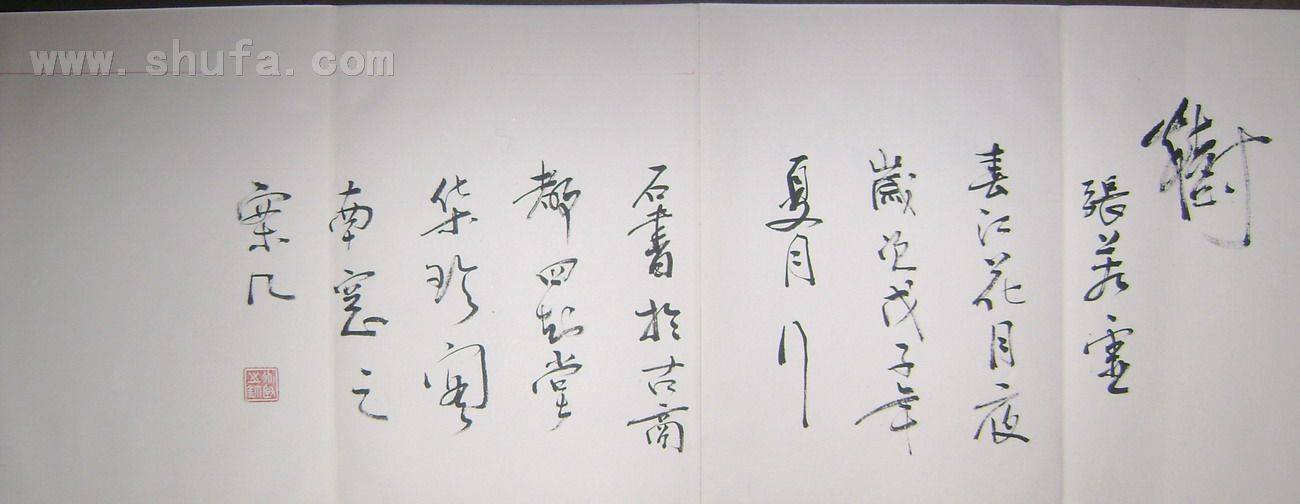 www.shufa.com
樹
張若虛
春江花月夜
歲次戊子年
夏月川
石書於古商
都四堂
珍閣
南窗之
案几